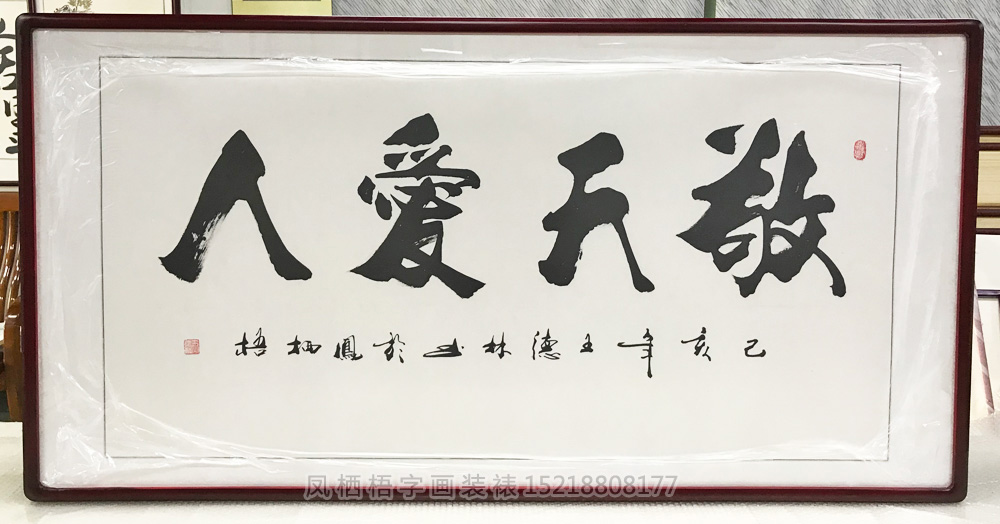 敬天愛人
己亥年王德林書於鳳栖梧
凤栖梧字画装裱15218808177